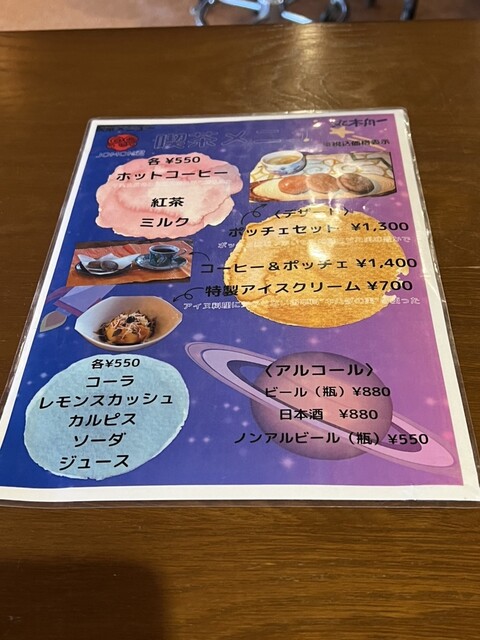 JOMON
喫茶メニュー
※税込価格表示
各 ¥550
ホットコーヒー
紅茶
ミルク
〈デザート〉
ポッチェセット ¥1,300
コーヒー＆ポッチェ ¥1,400
特製アイスクリーム ¥700
各¥550
コーラ
レモンスカッシュ
カルピス
ソーダ
ジュース
〈アルコール〉
ビール（瓶）¥880
日本酒 ¥880
ノンアルビール（瓶）¥550